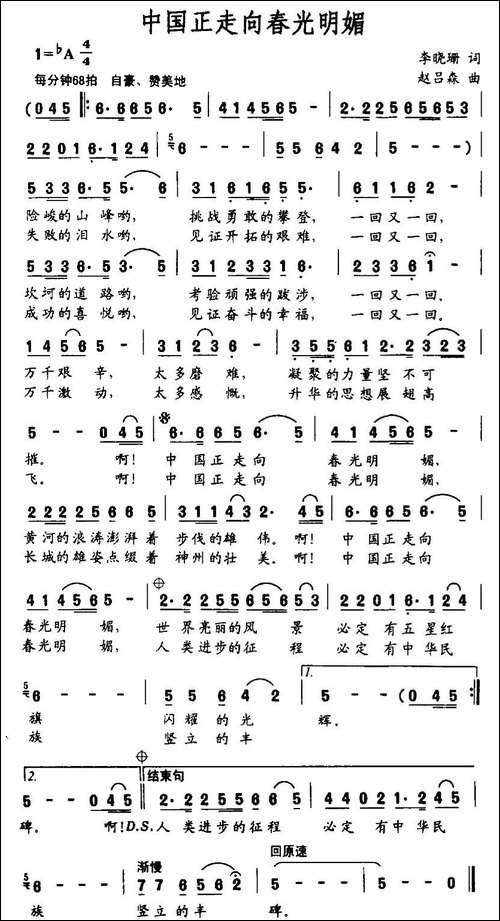 中国正走向春光明媚
1=♭A 4/4
李晓珊 词
每分钟68拍 自豪、赞美地
赵吕森 曲
(0 4 5 |: 6· 6 6 5 6 6· 5 | 4 1 4 5 6 5 - | 2· 2 2 5 6 5 6 5 |
2 2 0 1 6· 1 2 4 | 6 - - - | 5 5 6 4 2 | 5 - - - ) |
5 3 3 6· 5 5· 6 | 3 1 1 6 1 6 5 5· | 6 1 1 6 2 - |
险峻的山峰哟, 挑战勇敢的攀登, 一回又一回,
失败的泪水哟, 见证开拓的艰难, 一回又一回,
5 3 3 6· 5 3· 5 | 3 1 2 3 3 1 6· | 2 3 3 6 1 - |
坎河的道路哟, 考验顽强的跋涉, 一回又一回。
成功的喜悦哟, 见证奋斗的幸福, 一回又一回。
1 4 5 6 5 - | 1 2 3 6 3 - | 3 5 5 6 1 2 3 1 |
万千艰辛, 太多磨难, 凝聚的力量坚不可
万千激动, 太多感慨, 升华的思想展翅高
5 - - 0 4 5 | 6· 6 6 5 6 6· 5 | 4 1 4 5 6 5 - |
摧。 啊! 中国正走向 春光明媚,
飞。 啊! 中国正走向 春光明媚,
2 2 2 1 2 2 2 3 | 3 1 1 4 3 2· 4 5 | 6· 6 6 5 6 6· 5 |
黄河的浪涛澎湃着 步伐的雄伟。啊! 中国正走向
长城的雄姿点缀着 神州的壮美。啊! 中国正走向
4 1 4 5 6 5 - | 2· 2 2 5 5 6 5 6 5 3 | 2 2 0 1 6· 1 2 4 |
春光明媚, 世界亮丽的风景 必定有五星红
春光明媚, 人类进步的征程 必定有中华民
1.
6 - - - | 5 5 6 4 2 | 5 - - (0 4 5 :|
旗 闪耀的光辉。
族 竖立的丰
2. 结束句
5 - - 0 4 5 || 2· 2 2 5 5 6 6 5 | 4 4 0 2 1· 2 4 5 |
碑。 啊!D.S.人类进步的征程 必定有中华民
渐慢 回原速
6 - - - | 7 7 6 5 6 2 | 5 - - - | 5 0 0 0 ||
族 竖立的丰碑。